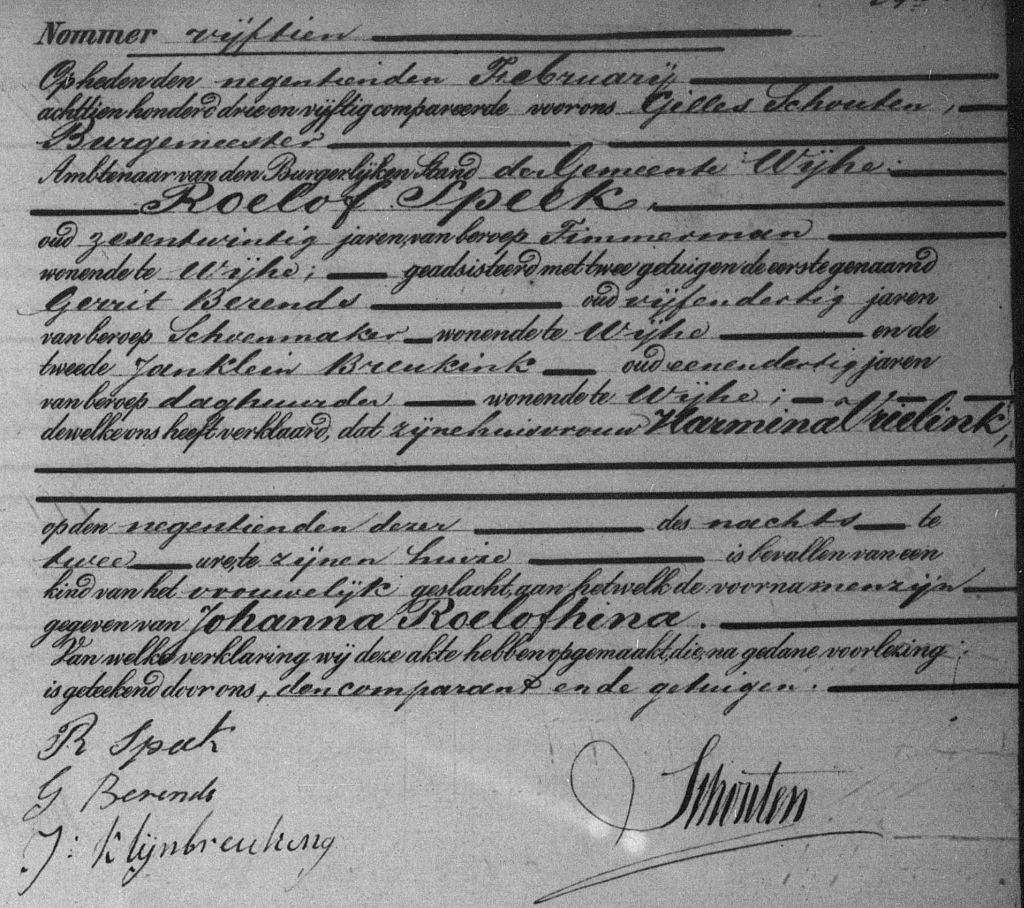 Nommer vijftien
Op heden den negentienden Februarij
achttien honderd drie en vijftig compareerde voor ons Gilles Schouten,
Burgemeester
Ambtenaar van den Burgerlijken Stand der Gemeente Wijhe:
Roelof Speek,
oud zesentwintig jaren, van beroep Timmerman
wonende te Wijhe; geadsisteerd met twee getuigen de eerste genaamd
Gerrit Berends oud vijfendertig jaren
van beroep Schoenmaker wonende te Wijhe en de
tweede Jan klein Breukink oud eenendertig jaren
van beroep daghuurder wonende te Wijhe;
dewelke ons heeft verklaard, dat zijne huisvrouw Harmina Vrielink,
op den negentienden dezer des nachts te
twee ure, te zijnen huize is bevallen van een
kind van het vrouwelijk geslacht, aan hetwelk de voornamen zijn
gegeven van Johanna Roelofhina.
Van welke verklaring wij deze akte hebben opgemaakt, die, na gedane voorlezing
is geteekend door ons, den comparant en de getuigen.
R Speek
G Berends
Schouten
J: Klijnbreuking